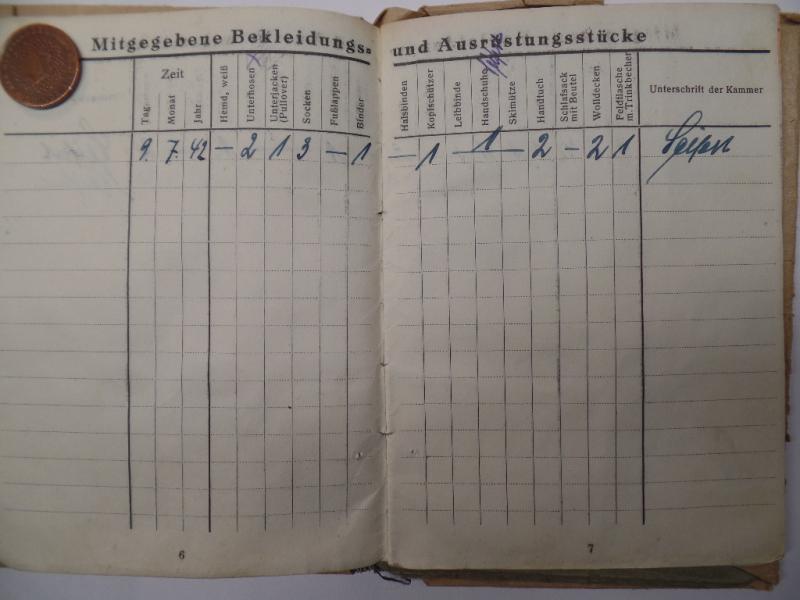 Mitgegebene Bekleidungs- und Ausrüstungsstücke
Zeit
Tag
Monat
Jahr
Hemd, weiß
Unterhosen
Unterjacken (Pullover)
Socken
Fußlappen
Binder
Halsbinden
Kopfschützer
Leibbinde
Handschuhe
Skimütze
Handtuch
Schlafsack mit Beutel
Wolldecken
Feldflasche m. Trinkbecher
Unterschrift der Kammer
9. 7. 42 — 2 1 3 — 1 — 1 — 1 — 2 — 2 1
6
7